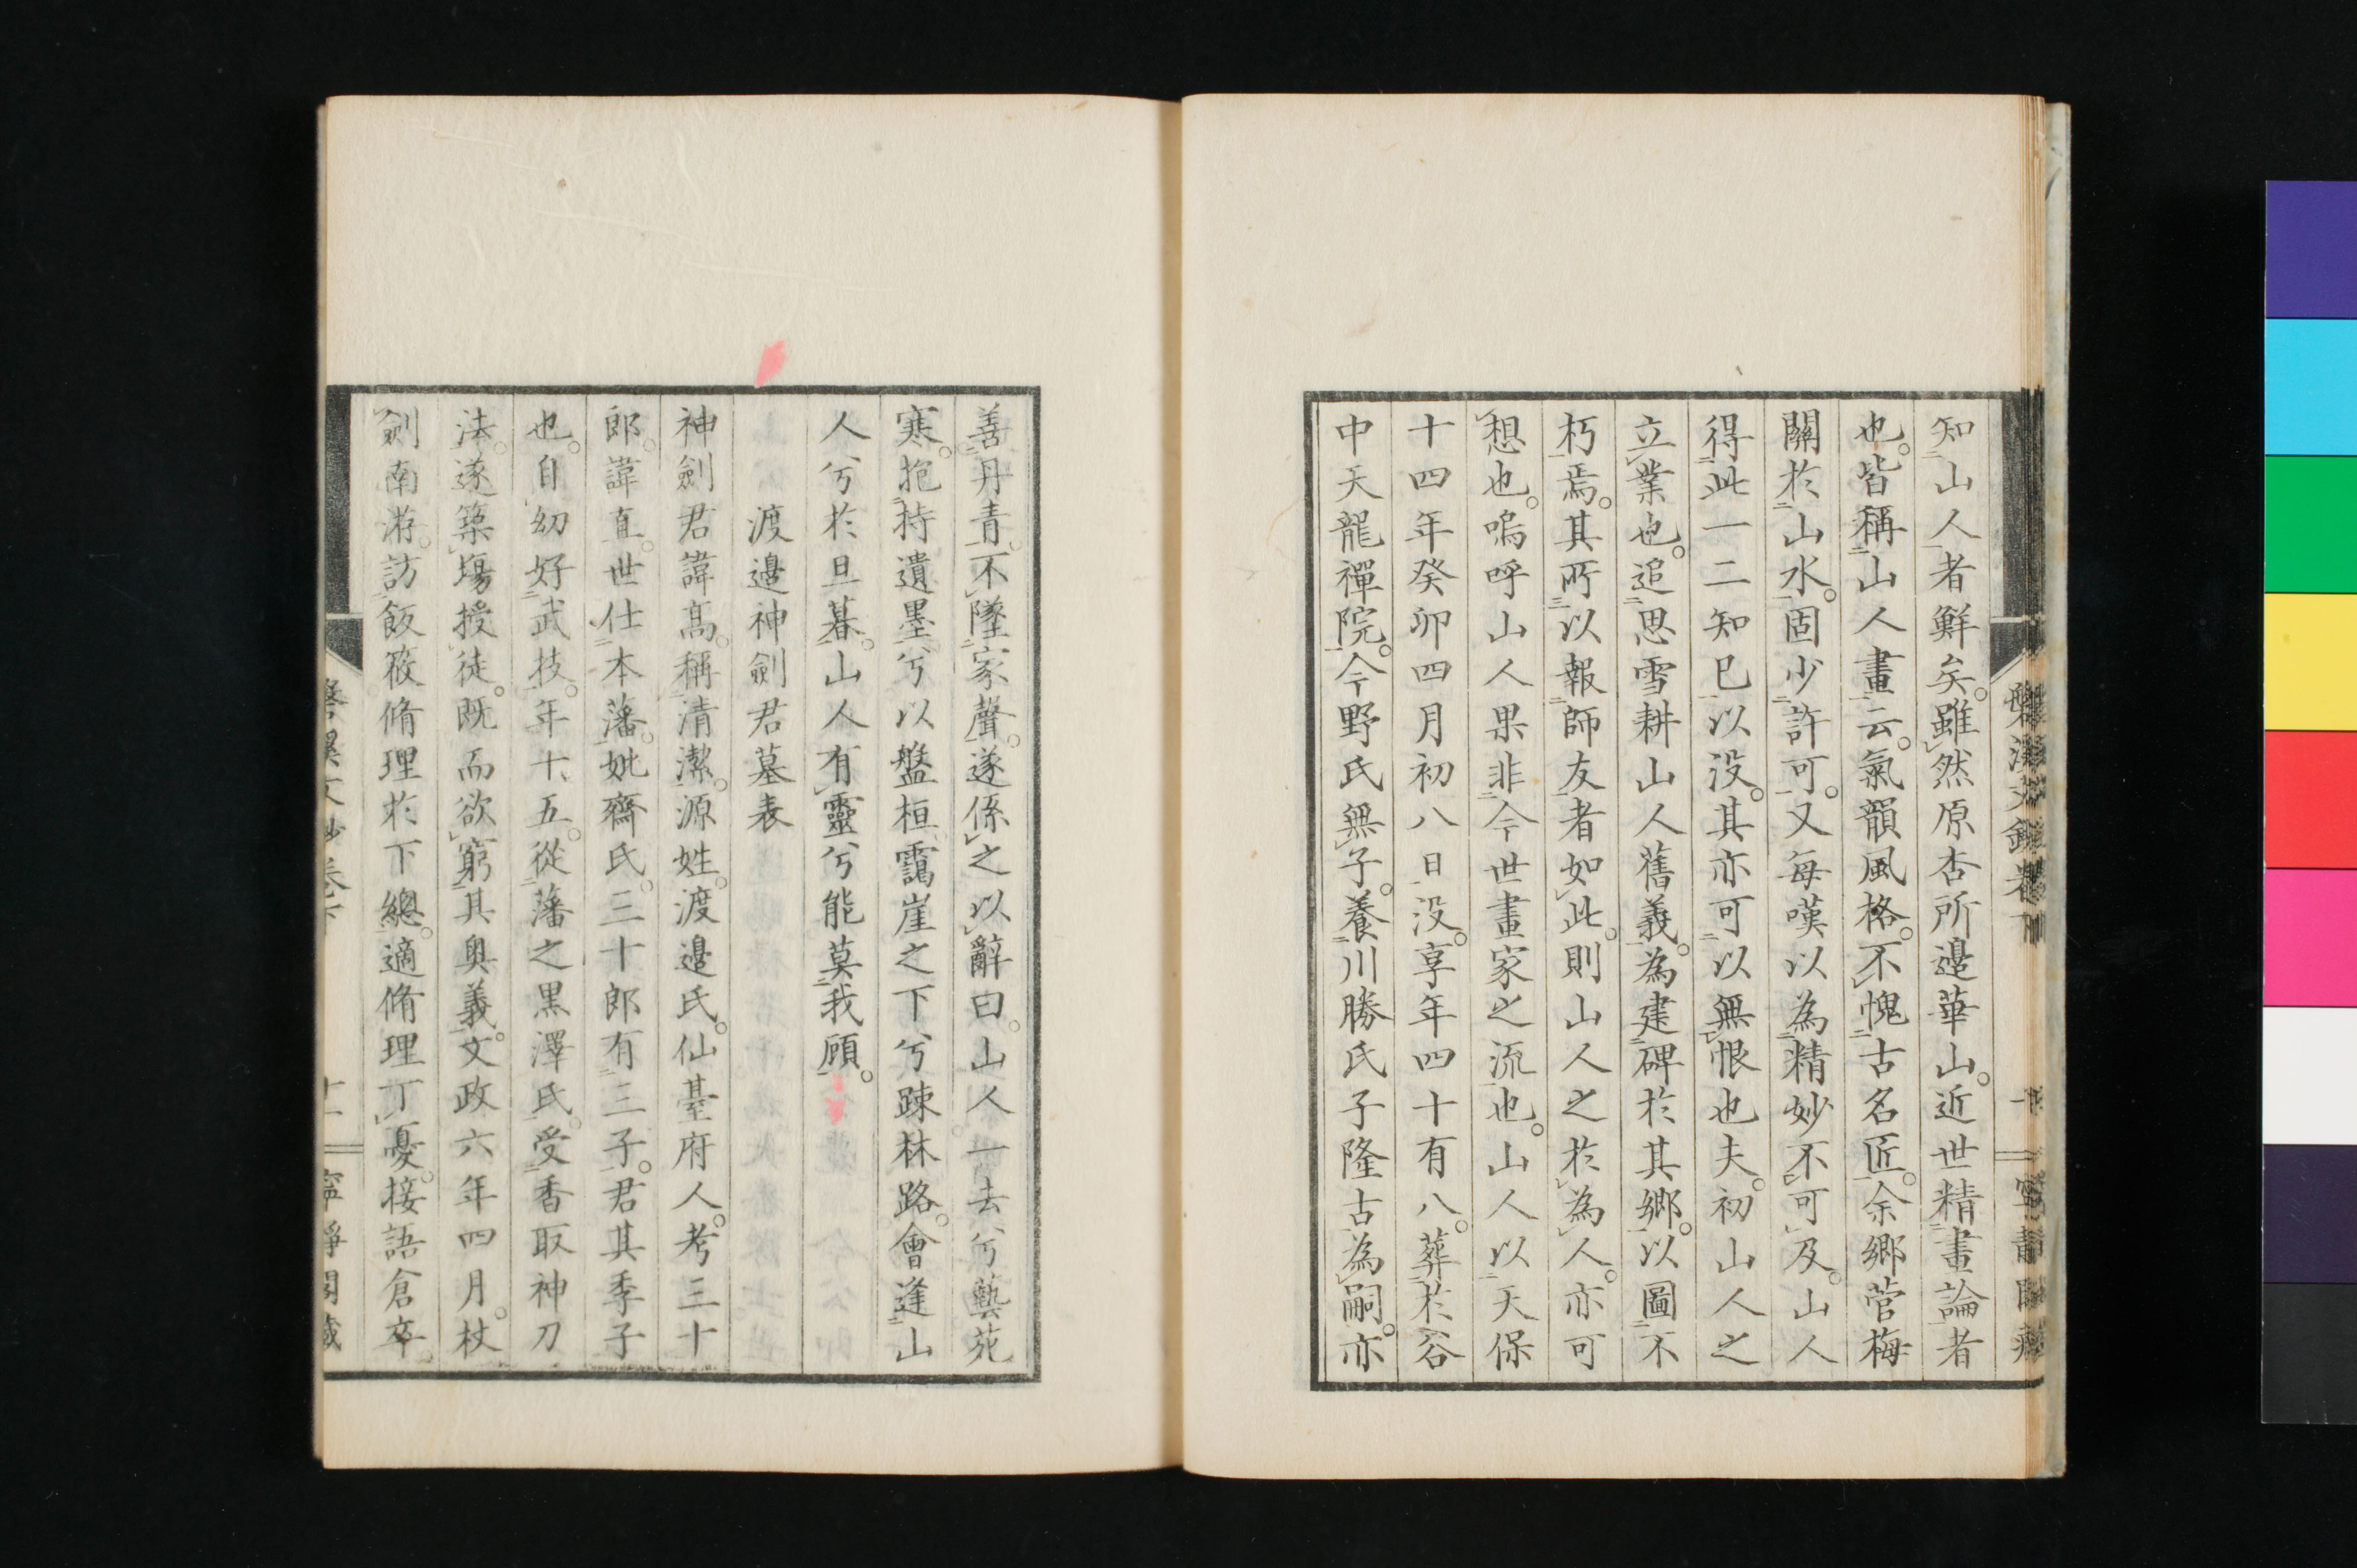 知山人者鮮矣。雖然原杏所邉華山。近世精畫論者
也。皆稱山人畫云。氣韻風格。不愧古名匠。余鄉菅梅
關於山水。固少許可。又每嘆以為精妙不可及。山人
得此一二知已以没。其亦可以無恨也夫。初山人之
立業也。追思雪耕山人舊義。為建碑於其鄉。以圖不
朽焉。其所以報師友者如此。則山人之於為人。亦可
想也。嗚呼山人果非今世畫家之流也。山人以天保
十四年癸卯四月初八日没。享年四十有八。葬於谷
中天龍禪院。今野氏無子。養川勝氏子隆古為嗣。亦
善丹青。不墜家聲。遂係之以辭曰。山人一去兮藝苑
寒。抱持遺墨兮以盤桓。靄崖之下兮踈林路。會逢山
人兮於旦暮。山人有靈兮能莫我顧。
渡邉神劍君墓表
神劍君諱髙。稱清潔。源姓。渡邉氏。仙臺府人。考三十
郎。諱直。世仕本藩。妣齋氏。三十郎有三子。君其季子
也。自幼好武技。年十五。從藩之黒澤氏。受香取神刀
法。遂築塲授徒。既而欲窮其奥義。文政六年四月。杖
劍南游。訪飯篠脩理於下總。適脩理丁憂。接語倉卒。